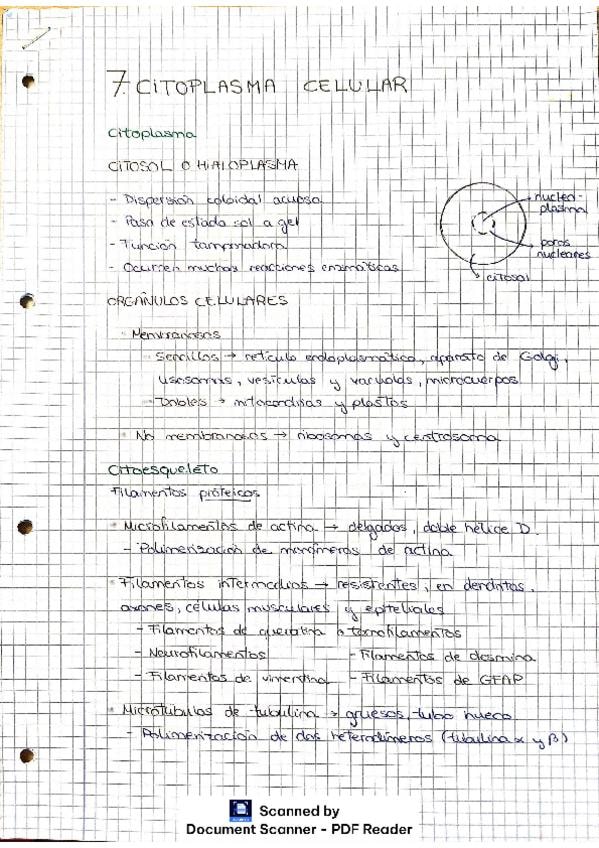 7. CITOPLASMA CELULAR
Citoplasma
CITOSOL O HIALOPLASMA
- Dispersión coloidal acuosa
- Pasa de estado sol a gel
- Función tamponadora
- Ocurren muchas reacciones enzimáticas
nucleo-
plasma
poros
nucleares
citosol
ORGÁNULOS CELULARES
· Membranosos
· Sencillos → retículo endoplasmático, aparato de Golgi,
lisosomas, vesículas y vacuolas, microcuerpos
· Dobles → mitocondrias y plastos
· No membranosos → ribosomas y centrosoma
Citoesqueleto
Filamentos próteicos
· Microfilamentos de actina → delgados, doble hélice D.
- Polimerización de monómeros de actina
· Filamentos intermedios → resistentes, en dendritas,
axones, células musculares y epiteliales
- Filamentos de queratina o tonofilamentos
- Neurofilamentos - Filamentos de desmina
- Filamentos de vimentina - Filamentos de GFAP
· Microtúbulos de tubulina → gruesos, tubo hueco
- Polimerización de dos heterodímeros (tubulina α y β)
Scanned by
Document Scanner - PDF Reader